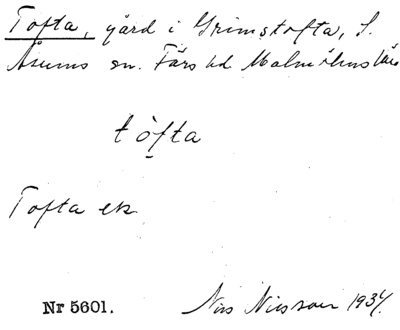 Tofta, gård i Grimstofta, S.
Åsums sn. Färs hd. Malmöhus län
tòfta
Tofta ek
Nr 5601. Nils Nilsson 1934.